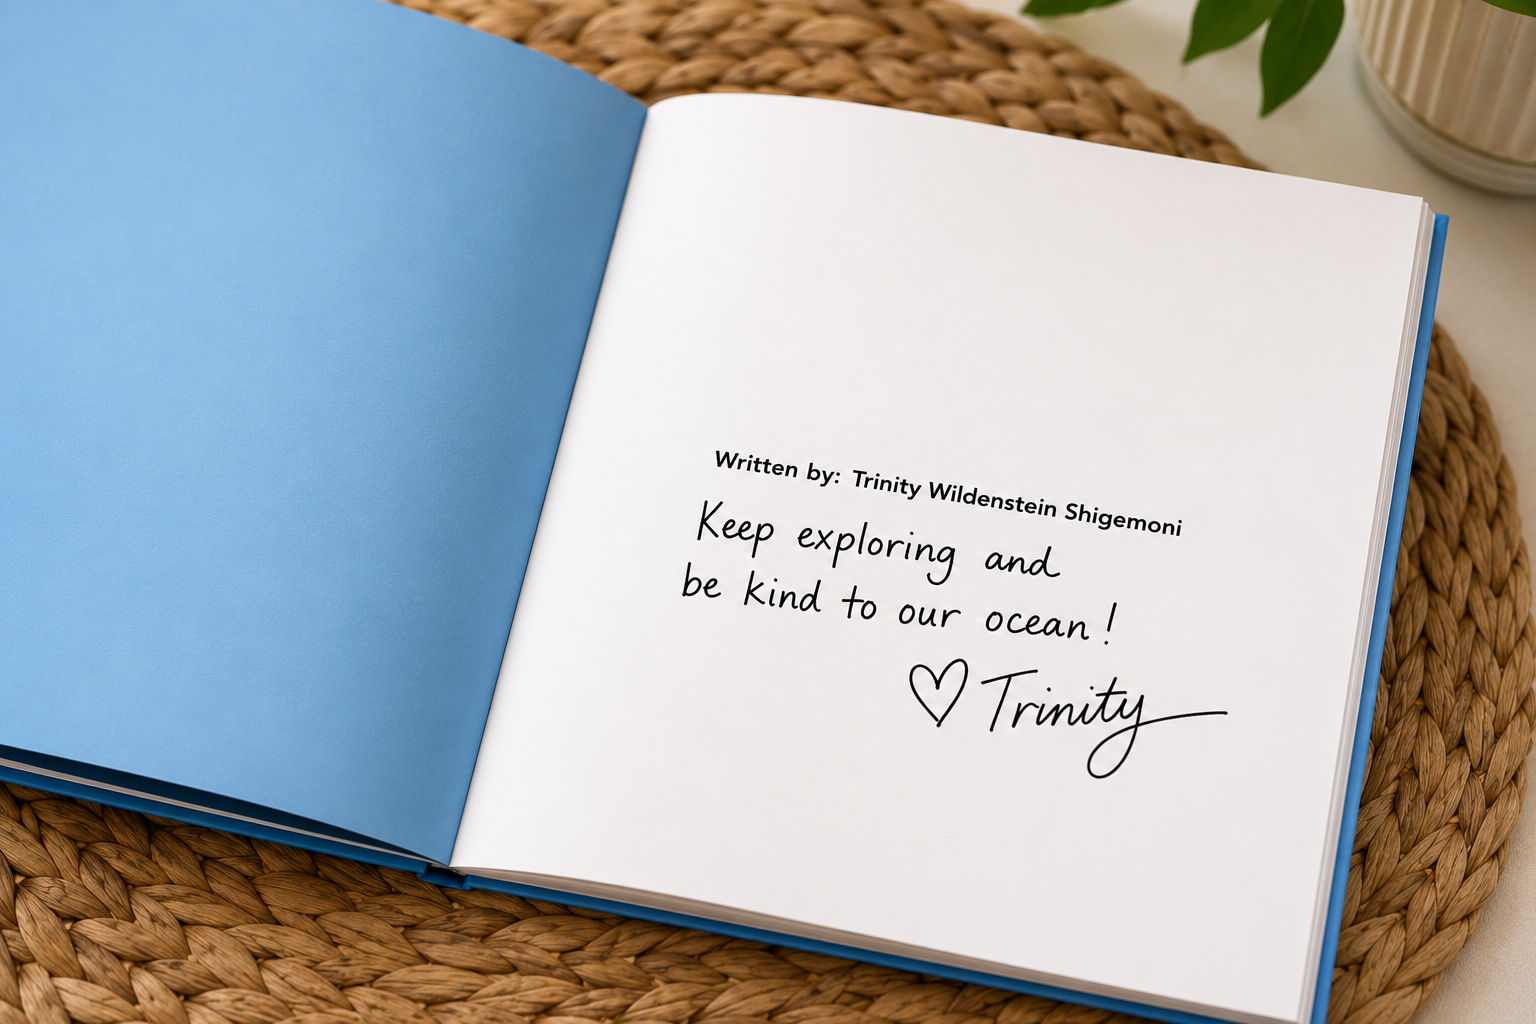 Written by: Trinity Wildenstein Shigemoni
Keep exploring and
be kind to our ocean!
♡ Trinity